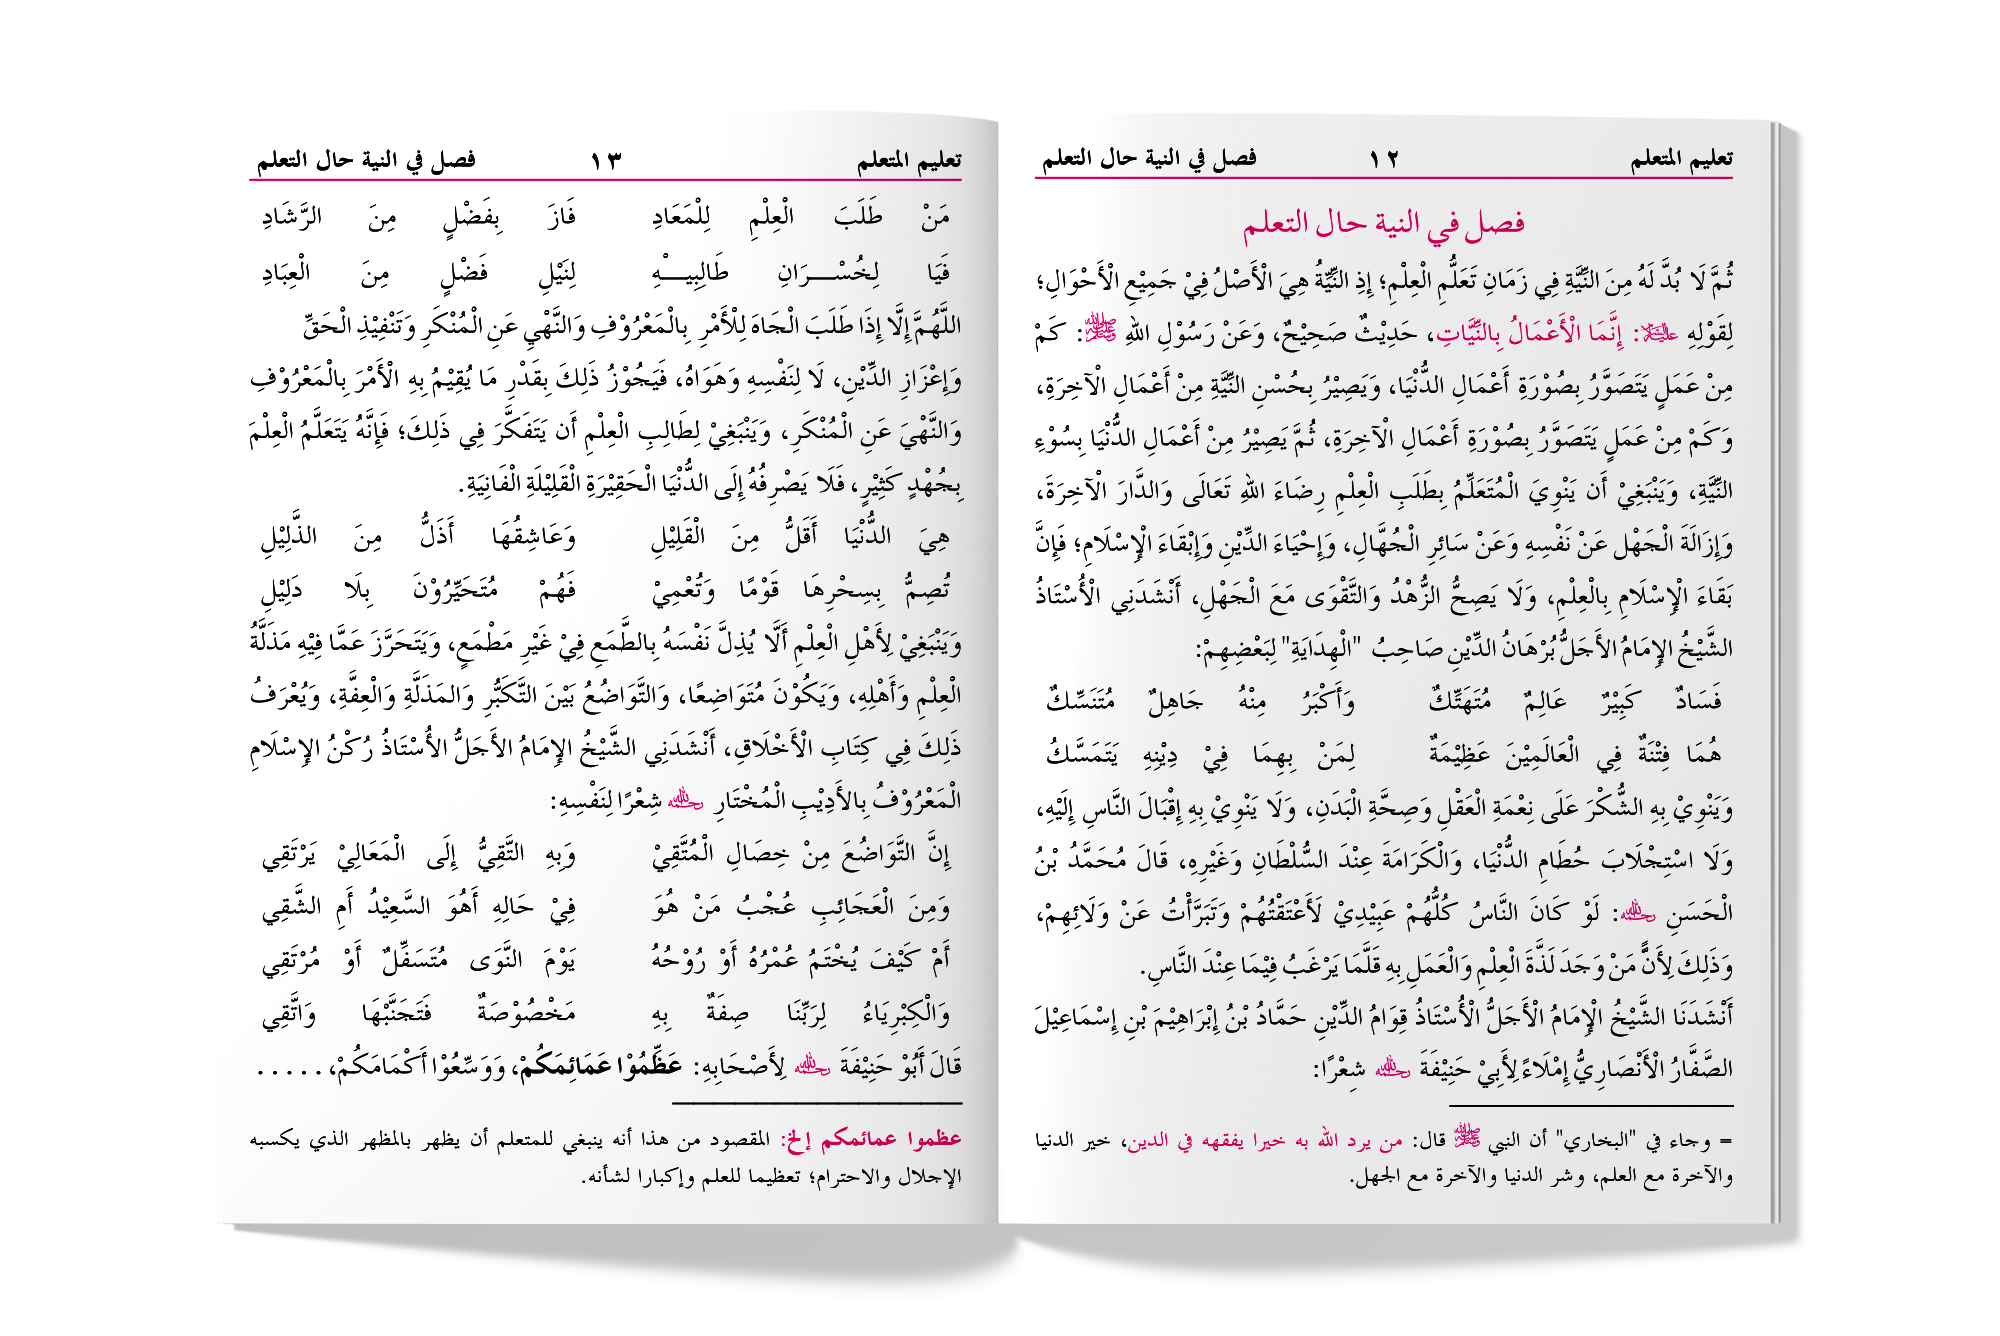 تعليم المتعلم ١٢ فصل في النية حال التعلم
فصل في النية حال التعلم
ثُمَّ لَا بُدَّ لَهُ مِنَ النِّيَّةِ فِي زَمَانِ تَعَلُّمِ الْعِلْمِ؛ إِذِ النِّيَّةُ هِيَ الْأَصْلُ فِيْ جَمِيْعِ الْأَحْوَالِ؛
لِقَوْلِهِ عليه السلام: إِنَّمَا الْأَعْمَالُ بِالنِّيَّاتِ، حَدِيْثٌ صَحِيْحٌ، وَعَنْ رَسُوْلِ اللهِ ﷺ: كَمْ
مِنْ عَمَلٍ يَتَصَوَّرُ بِصُوْرَةِ أَعْمَالِ الدُّنْيَا، وَيَصِيْرُ بِحُسْنِ النِّيَّةِ مِنْ أَعْمَالِ الْآخِرَةِ،
وَكَمْ مِنْ عَمَلٍ يَتَصَوَّرُ بِصُوْرَةِ أَعْمَالِ الْآخِرَةِ، ثُمَّ يَصِيْرُ مِنْ أَعْمَالِ الدُّنْيَا بِسُوْءِ
النِّيَّةِ، وَيَنْبَغِيْ أَن يَنْوِيَ الْمُتَعَلِّمُ بِطَلَبِ الْعِلْمِ رِضَاءَ اللهِ تَعَالَى وَالدَّارَ الْآخِرَةَ،
وَإِزَالَةَ الْجَهْلِ عَنْ نَفْسِهِ وَعَنْ سَائِرِ الْجُهَّالِ، وَإِحْيَاءَ الدِّيْنِ وَإِبْقَاءَ الْإِسْلَامِ؛ فَإِنَّ
بَقَاءَ الْإِسْلَامِ بِالْعِلْمِ، وَلَا يَصِحُّ الزُّهْدُ وَالتَّقْوَى مَعَ الْجَهْلِ، أَنْشَدَنِي الْأُسْتَاذُ
الشَّيْخُ الإِمَامُ الأَجَلُّ بُرْهَانُ الدِّيْنِ صَاحِبُ "الْهِدَايَةِ" لِبَعْضِهِمْ:
فَسَادٌ كَبِيْرٌ عَالِمٌ مُتَهَتِّكٌ وَأَكْبَرُ مِنْهُ جَاهِلٌ مُتَنَسِّكٌ
هُمَا فِتْنَةٌ فِي الْعَالَمِيْنَ عَظِيْمَةٌ لِمَنْ بِهِمَا فِيْ دِيْنِهِ يَتَمَسَّكُ
وَيَنْوِيْ بِهِ الشُّكْرَ عَلَى نِعْمَةِ الْعَقْلِ وَصِحَّةِ الْبَدَنِ، وَلَا يَنْوِيْ بِهِ إِقْبَالَ النَّاسِ إِلَيْهِ،
وَلَا اسْتِجْلَابَ حُطَامِ الدُّنْيَا، وَالْكَرَامَةَ عِنْدَ السُّلْطَانِ وَغَيْرِهِ، قَالَ مُحَمَّدُ بْنُ
الْحَسَنِ رحمه الله: لَوْ كَانَ النَّاسُ كُلُّهُمْ عَبِيْدِيْ لَأَعْتَقْتُهُمْ وَتَبَرَّأْتُ عَنْ وَلَائِهِمْ،
وَذَلِكَ لِأَنَّ مَنْ وَجَدَ لَذَّةَ الْعِلْمِ وَالْعَمَلِ بِهِ قَلَّمَا يَرْغَبُ فِيْمَا عِنْدَ النَّاسِ.
أَنْشَدَنَا الشَّيْخُ الْإِمَامُ الْأَجَلُّ الْأُسْتَاذُ قِوَامُ الدِّيْنِ حَمَّادُ بْنُ إِبْرَاهِيْمَ بْنِ إِسْمَاعِيْلَ
الصَّفَّارُ الْأَنْصَارِيُّ إِمْلَاءً لِأَبِيْ حَنِيْفَةَ رحمه الله شِعْرًا:
= وجاء في "البخاري" أن النبي ﷺ قال: من يرد الله به خيرا يفقهه في الدين، خير الدنيا
والآخرة مع العلم، وشر الدنيا والآخرة مع الجهل.
تعليم المتعلم ١٣ فصل في النية حال التعلم
مَنْ طَلَبَ الْعِلْمِ لِلْمَعَادِ فَازَ بِفَضْلٍ مِنَ الرَّشَادِ
فَيَا لِخُسْــرَانِ طَالِبِيــهِ لِنَيْلِ فَضْلٍ مِنَ الْعِبَادِ
اللَّهُمَّ إِلَّا إِذَا طَلَبَ الْجَاهَ لِلْأَمْرِ بِالْمَعْرُوْفِ وَالنَّهْيِ عَنِ الْمُنْكَرِ وَتَنْفِيْذِ الْحَقِّ
وَإِعْزَازِ الدِّيْنِ، لَا لِنَفْسِهِ وَهَوَاهُ، فَيَجُوْزُ ذَلِكَ بِقَدْرِ مَا يُقِيْمُ بِهِ الْأَمْرَ بِالْمَعْرُوْفِ
وَالنَّهْيَ عَنِ الْمُنْكَرِ، وَيَنْبَغِيْ لِطَالِبِ الْعِلْمِ أَن يَتَفَكَّرَ فِي ذَلِكَ؛ فَإِنَّهُ يَتَعَلَّمُ الْعِلْمَ
بِجُهْدٍ كَثِيْرٍ، فَلَا يَصْرِفُهُ إِلَى الدُّنْيَا الْحَقِيْرَةِ الْقَلِيْلَةِ الْفَانِيَةِ.
هِيَ الدُّنْيَا أَقَلُّ مِنَ الْقَلِيْلِ وَعَاشِقُهَا أَذَلُّ مِنَ الذَّلِيْلِ
تُصِمُّ بِسِحْرِهَا قَوْمًا وَتُعْمِيْ فَهُمْ مُتَحَيِّرُوْنَ بِلَا دَلِيْلِ
وَيَنْبَغِيْ لِأَهْلِ الْعِلْمِ أَلَّا يُذِلَّ نَفْسَهُ بِالطَّمَعِ فِيْ غَيْرِ مَطْمَعٍ، وَيَتَحَرَّزَ عَمَّا فِيْهِ مَذَلَّةُ
الْعِلْمِ وَأَهْلِهِ، وَيَكُوْنَ مُتَوَاضِعًا، وَالتَّوَاضُعُ بَيْنَ التَّكَبُّرِ وَالمَذَلَّةِ وَالْعِفَّةِ، وَيُعْرَفُ
ذَلِكَ فِي كِتَابِ الْأَخْلَاقِ، أَنْشَدَنِي الشَّيْخُ الإِمَامُ الأَجَلُّ الأُسْتَاذُ رُكْنُ الإِسْلَامِ
الْمَعْرُوْفُ بِالأَدِيْبِ الْمُخْتَارِ رحمه الله شِعْرًا لِنَفْسِهِ:
إِنَّ التَّوَاضُعَ مِنْ خِصَالِ الْمُتَّقِيْ وَبِهِ التَّقِيُّ إِلَى الْمَعَالِيْ يَرْتَقِي
وَمِنَ الْعَجَائِبِ عُجْبُ مَنْ هُوَ فِيْ حَالِهِ أَهُوَ السَّعِيْدُ أَمِ الشَّقِي
أَمْ كَيْفَ يُخْتَمُ عُمْرُهُ أَوْ رُوْحُهُ يَوْمَ النَّوَى مُتَسَفِّلٌ أَوْ مُرْتَقِي
وَالْكِبْرِيَاءُ لِرَبِّنَا صِفَةٌ بِهِ مَخْصُوْصَةٌ فَتَجَنَّبْهَا وَاتَّقِي
قَالَ أَبُوْ حَنِيْفَةَ رحمه الله لِأَصْحَابِهِ: عَظِّمُوْا عَمَائِمَكُمْ، وَوَسِّعُوْا أَكْمَامَكُمْ، .....
عظموا عمائمكم إلخ: المقصود من هذا أنه ينبغي للمتعلم أن يظهر بالمظهر الذي يكسبه
الإجلال والاحترام؛ تعظيما للعلم وإكبارا لشأنه.